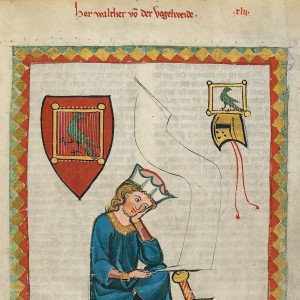 Her walther võ der Vogelweide. xlij